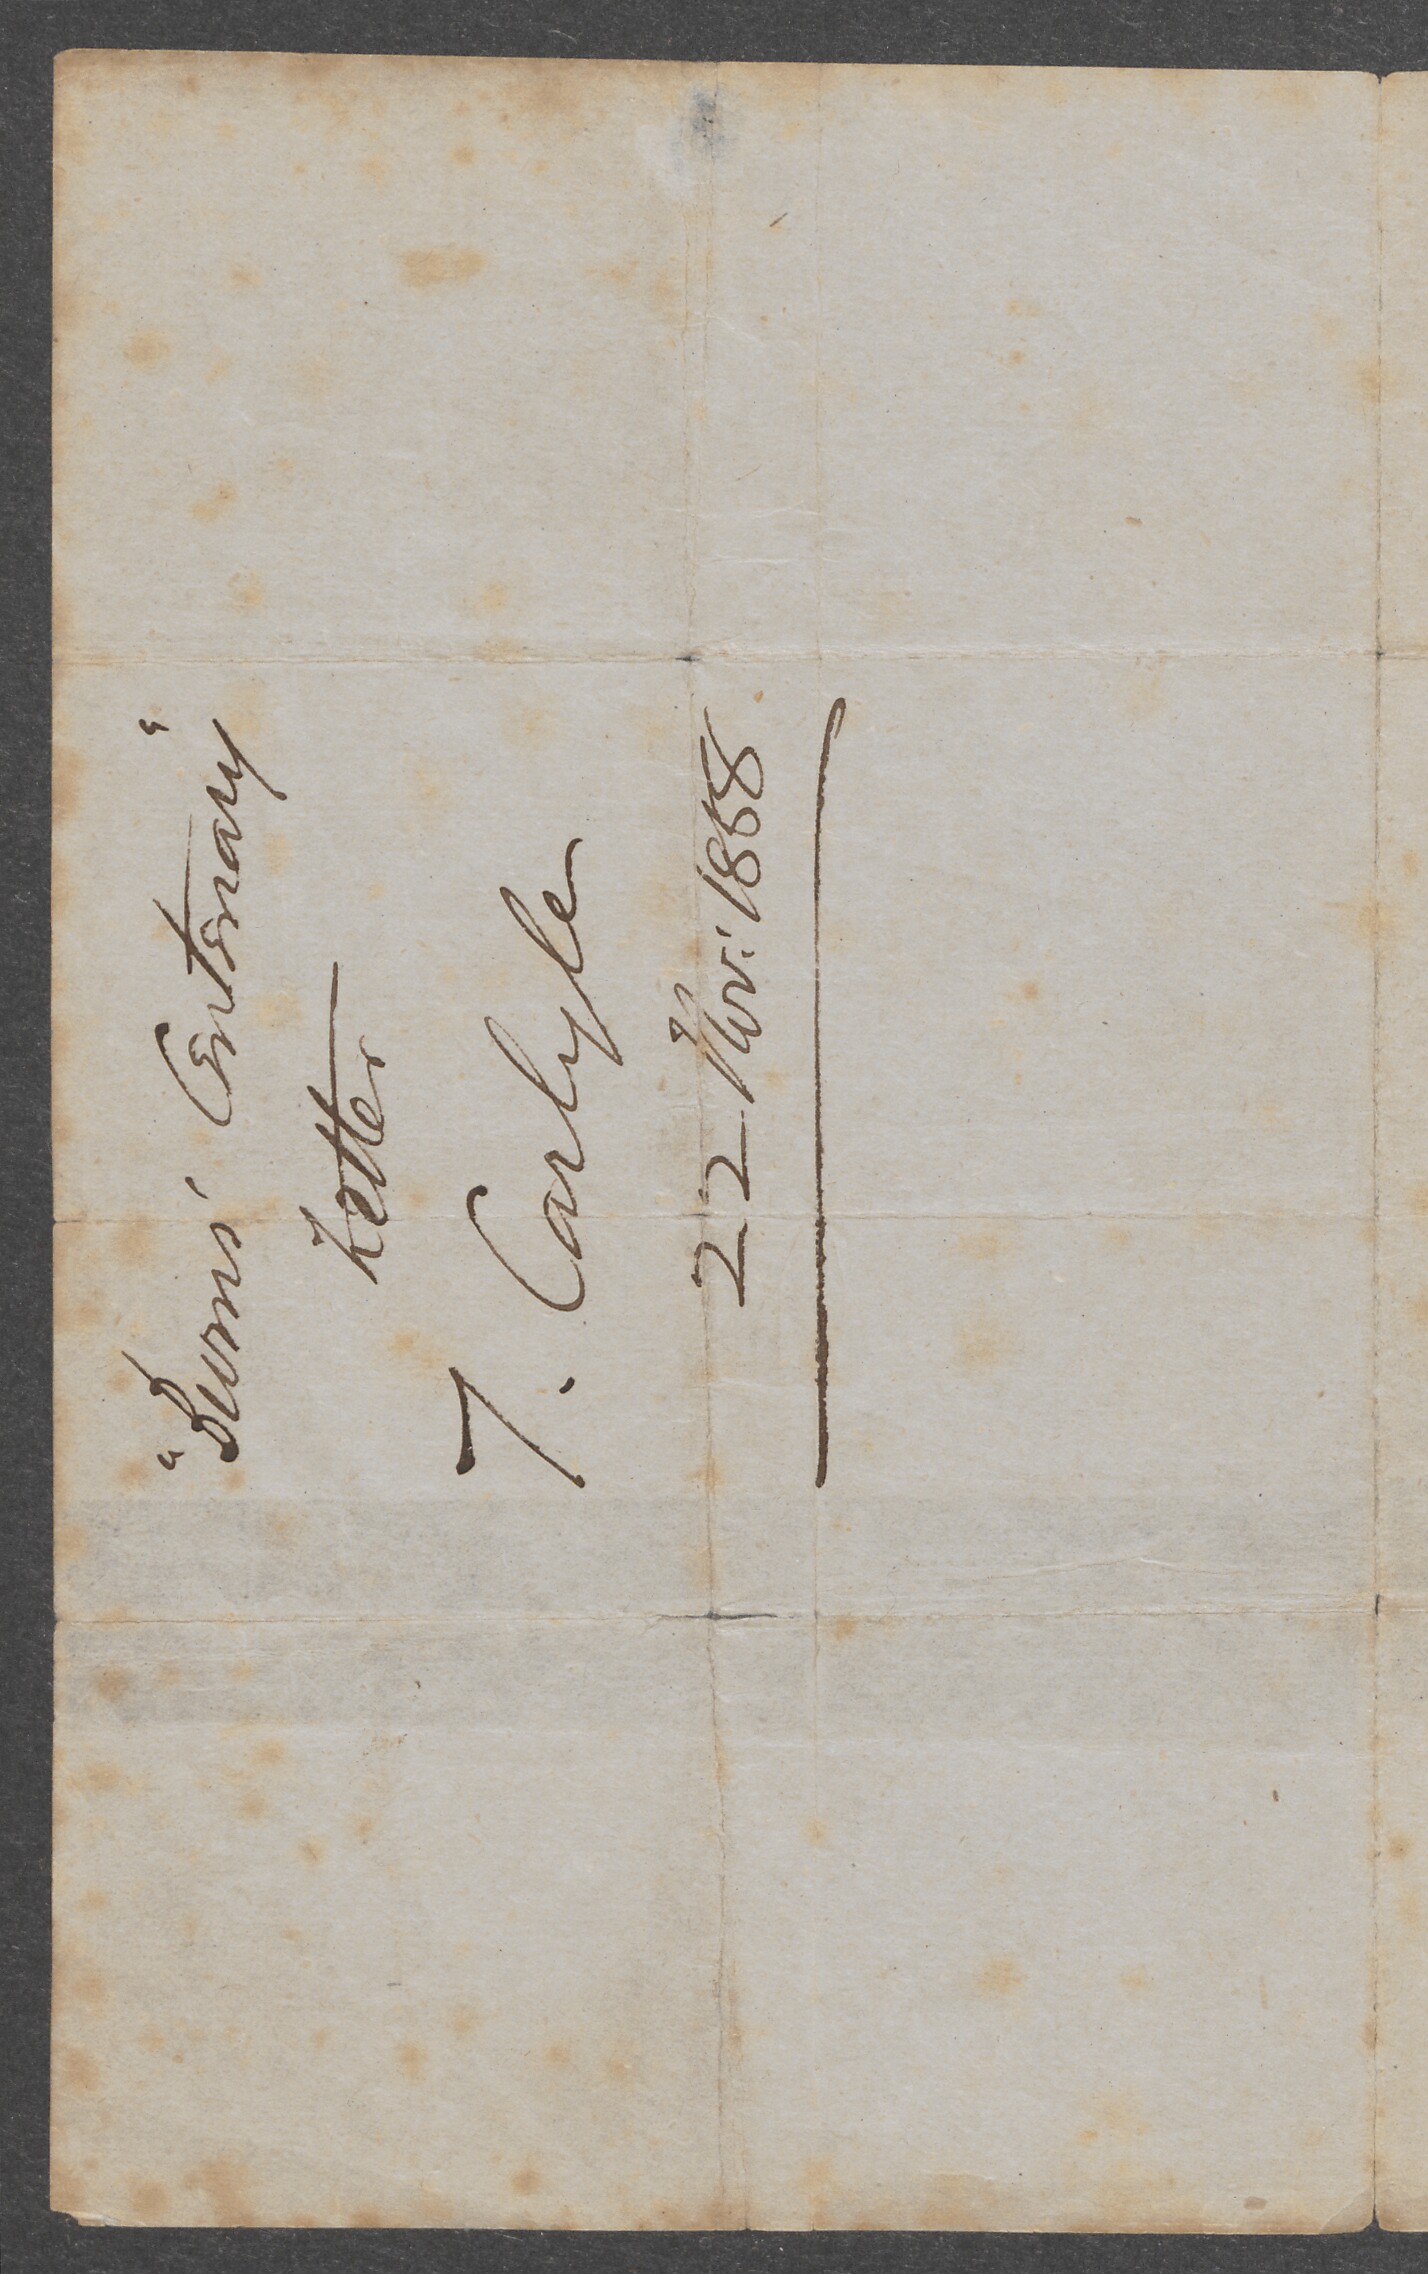 "Burns' Centenary"
Letter
T. Carlyle
22 Nov: 1858